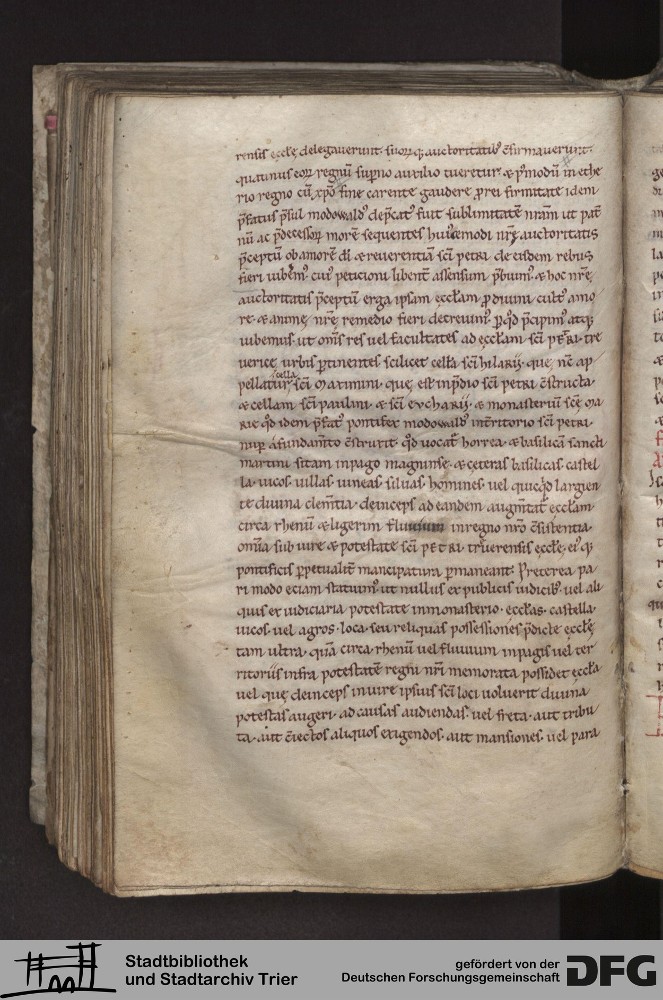 rensis eccłę delegaverunt. suorꝝ q; auctoritatib; c̄firmaverunt.
quatinus eorꝝ regnū sup̄no auxilio tueretur. & p̄modū in ethe
rio regno cū xp̄o fine carente gaudere. p̄rei firmitate idem
p̄fatus p̄sul modowald᾽ dep̄cat᾽ fuit sublimitatē nr̄am ut pat̄
nū ac p̄decessorꝝ morē sequentes hui᾽cemodi nr̄ę auctoritatis
p̄ceptū ob amorē dī & reverentiā sc̄i petri de eisdem rebus
fieri iuberem᾽. cui᾽ peticioni libent̄ assensum p̄buim᾽. & hoc nr̄ę
auctoritatis p̄ceptū erga ipsam ęccłam. p̄ divini cult᾽ amo
re. & animę nr̄ę remedio fieri decreuim᾽. p̄ qd̄ p̄cipim᾽ atq;
iubemus. ut om̄s res vel facultates ad ęccłam sc̄i PETRI. tre
verice urbis p̄tinentes scilicet cella sc̄i hilarij. que nc̄ ap
pellatur cella sc̄i Maximini. que est in p̄dio sc̄i petri c̄structa.
& cellam sc̄i paulini. & sc̄i evcharij. & monasteriū scę ma
rie qd̄ idem p̄fat᾽ pontifex modowald᾽ int̄ritorio sc̄i petri.
nup̄ a fundam̄to c̄struxit. qd̄ vocat̄ horrea. & basilicā sancti
martini sitam in pago magninse. & ceteras basilicas. castel
la. vicos. villas. vineas. silvas. homines. vel quicqd̄ largien
te divina clem̄tia. deinceps ad eandem augm̄tat̄ ęccłam.
circa rhenū & ligerim fluvium in regno nr̄o c̄sistentia.
om̄ia sub iure & potestate sc̄i PETRI. trēverensis ęccłę. ei᾽ q;
pontificis p̄petualit̄ mancipatura p̄maneant. Preterea pa
ri modo eciam statuim᾽. ut nullus ex publicis iudicib᾽. vel ali
quis ex iudiciaria potestate in monasterio. ęccłas. castella.
vicos. vel agros. loca. seu reliquas possessiones p̄dictę ęccłę
tam ultra. quā circa rhenū vel fluvium in pagis vel ter
ritoriis infra potestatē regni nr̄i memorata possidet ęccła
vel que deinceps in iure ipsius sc̄i loci voluerit divina
potestas augeri. ad causas audiendas. vel freta. aut tribu
ta. aut c̄iectos aliquos exigendos. aut mansiones. vel para
Stadtbibliothek
und Stadtarchiv Trier
gefördert von der
Deutschen Forschungsgemeinschaft
DFG